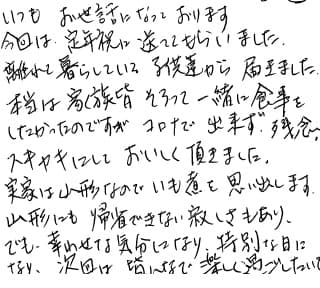 いつも お世話になっております
今回は、定年祝に送ってもらいました。
離れて暮らしている 子供達から 届きました。
本当は 家族皆 そろって 一緒に食事を
したかったのですが コロナで 出来ず、残念。
スキヤキにして おいしく頂きました。
実家は 山形なので いも煮を 思い出します。
山形にも 帰省できない 寂しさもあり、
でも、幸わせな気分になり、特別な日に
なり、次回は 皆んなで 楽しく過ごしたいで